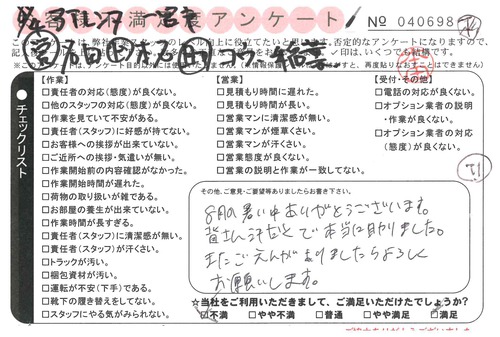 お客様不満足度アンケート
No 040698
【作業】
□責任者の対応(態度)が良くない。
□他のスタッフの対応(態度)が良くない。
□作業を見ていて不安がある。
□責任者(スタッフ)に好感が持てない。
□お客様への挨拶が出来ていない。
□ご近所への挨拶・気遣いが無い。
□作業開始前の内容確認がなかった。
□作業開始時間が遅れた。
□荷物の取り扱いが雑である。
□お部屋の養生が出来ていない。
□作業時間が長すぎる。
□責任者(スタッフ)に清潔感が無い。
□責任者(スタッフ)が汗くさい。
□トラックが汚い。
□梱包資材が汚い。
□運転が不安(下手)である。
□靴下の履き替えをしてない。
□スタッフにやる気がみられない。
チェックリスト
【営業】
□見積もり時間に遅れた。
□見積もり時間が長い。
□営業マンに清潔感が無い。
□営業マンが煙草くさい。
□営業マンが汗くさい。
□営業態度が良くない。
□営業の説明と作業が一致してない。
【受付・その他】
□電話の対応が良くない。
□オプション業者の説明
・作業が良くない。
□オプション業者の対応
(態度)が良くない。
その他、ご意見・ご要望等ありましたらお書き下さい。
8月の暑い中ありがとうございます。
皆さん汗だくで本当に助りました。
またごえんがありましたらよろしく
お願いします。
☆当社をご利用いただきまして、ご満足いただけたでしょうか?
□不満 □やや不満 □普通 □やや満足 □満足